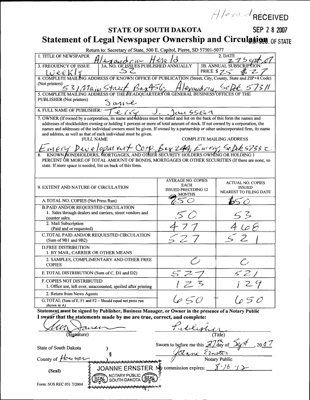 RECEIVED
SEP 28 2007
STATE OF SOUTH DAKOTA
Statement of Legal Newspaper Ownership and Circulation
S.D. SEC. OF STATE
Return to: Secretary of State, 500 E. Capitol, Pierre, SD 57501-5077
1. TITLE OF NEWSPAPER
Alexandria Herald
2. DATE
27 Sept 07
3. FREQUENCY OF ISSUE
Weekly
3A. NO. OF ISSUES PUBLISHED ANNUALLY
52
3B. ANNUAL SUBSCRIPTION
PRICE $
4. COMPLETE MAILING ADDRESS OF KNOWN OFFICE OF PUBLICATION (Street, City, County, State and ZIP+4 Code)
(Not printers)
531 Main Street Box 456, Alexandria, SD 57311
5. COMPLETE MAILING ADDRESS OF THE HEADQUARTERS OR GENERAL BUSINESS OFFICES OF THE
PUBLISHER (Not printer)
Same
6. FULL NAME OF PUBLISHER:
7. OWNER (If owned by a corporation, its name and address must be stated and list on the back of this form the names and
addresses of stockholders owning or holding 1 percent or more of total amount of stock. If not owned by a corporation, the
names and addresses of the individual owners must be given. If owned by a partnership or other unincorporated firm, its name
and address, as well as that of each individual must be given.
FULL NAME
COMPLETE MAILING ADDRESS
Emery Development Corp. Box 244, Emery, SD 57332
8. KNOWN BONDHOLDERS, MORTGAGES, AND OTHER SECURITY HOLDERS OWNING OR HOLDING 1
PERCENT OR MORE OF TOTAL AMOUNT OF BONDS, MORTGAGES OR OTHER SECURITIES (If there are none, so
state. If more space is needed, list on back of this form.
9. EXTENT AND NATURE OF CIRCULATION
AVERAGE NO. COPIES
EACH
ISSUED PRECEDING 12
MONTHS
ACTUAL NO. COPIES
ISSUED
NEAREST TO FILING DATE
A.TOTAL NO. COPIES (Net Press Run)
650
650
B.PAID AND/OR REQUESTED CIRCULATION
1. Sales through dealers and carriers, street vendors and
counter sales.
50
53
2. Mail Subscription
(Paid and or requested)
477
468
C.TOTAL PAID AND/OR REQUESTED CIRCULATION
(Sum of 9B1 and 9B2)
527
521
D.FREE DISTRIBUTION
1. BY MAIL, CARRIER OR OTHER MEANS
2. SAMPLES, COMPLIMENTARY AND OTHER FREE
COPIES
0
0
E.TOTAL DISTRIBUTION (Sum of C, D1 and D2)
527
521
F. COPIES NOT DISTRIBUTED
1. Office use, left over, unaccounted, spoiled after printing
123
129
2. Return from News Agents
G.TOTAL (Sum of E, F1 and F2 – Should equal net press run
shown in A)
650
650
Statement must be signed by Publisher, Business Manager, or Owner in the presence of a Notary Public
I swear that the statements made by me are true, correct, and complete:
Publisher
(Signature)
(Title)
State of South Dakota
)
§
County of Hanson
)
Sworn to before me this 27th day of Sept, 2007
Joanne Ernster
Notary Public
(Seal)
JOANNE ERNSTER
NOTARY PUBLIC
SOUTH DAKOTA
SEAL
SEAL
My commission expires: 8-16-12
Form: SOS REC 051 7/2004